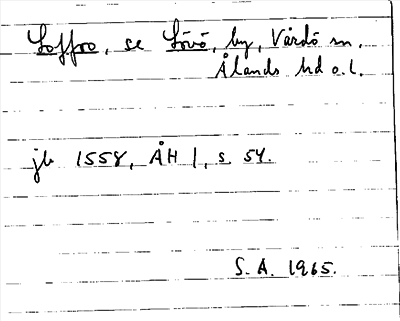 Loffoo, se Lövö, by, Vårdö sn,
Ålands hd o.l.
jb 1558, ÅH 1, s. 54.
S. A. 1965.